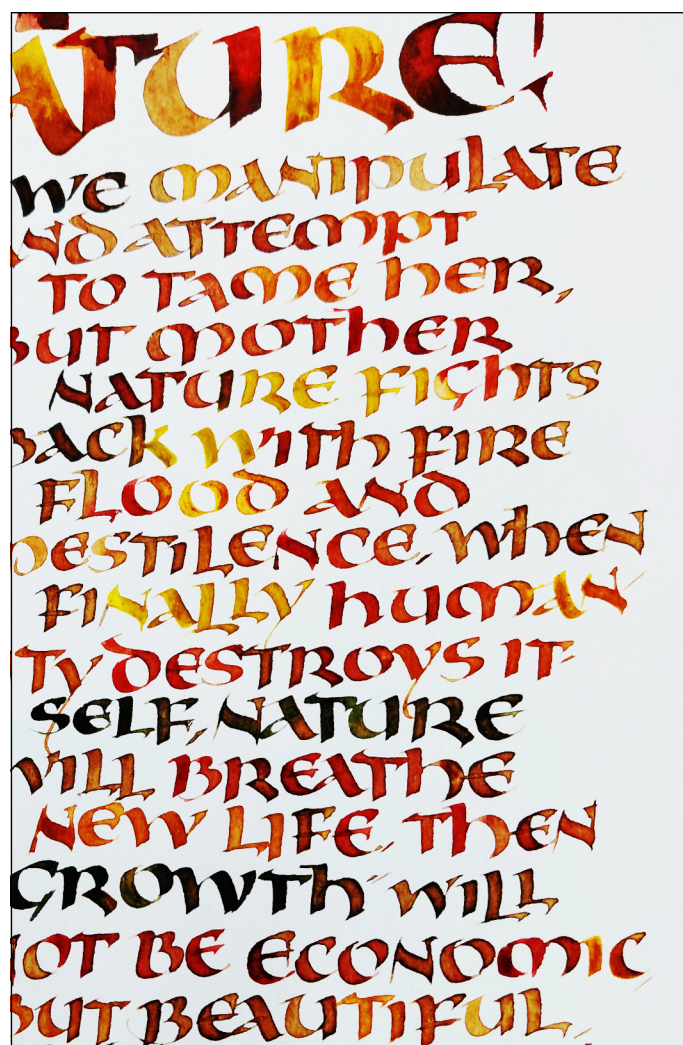 ATURE!
WE MANIPULATE
AND ATTEMPT
TO TAME HER,
BUT MOTHER
NATURE FIGHTS
BACK WITH FIRE
FLOOD AND
PESTILENCE. WHEN
FINALLY HUMAN
TY DESTROYS IT-
SELF, NATURE
WILL BREATHE
NEW LIFE. THEN
GROWTH" WILL
NOT BE ECONOMIC,
BUT BEAUTIFUL,